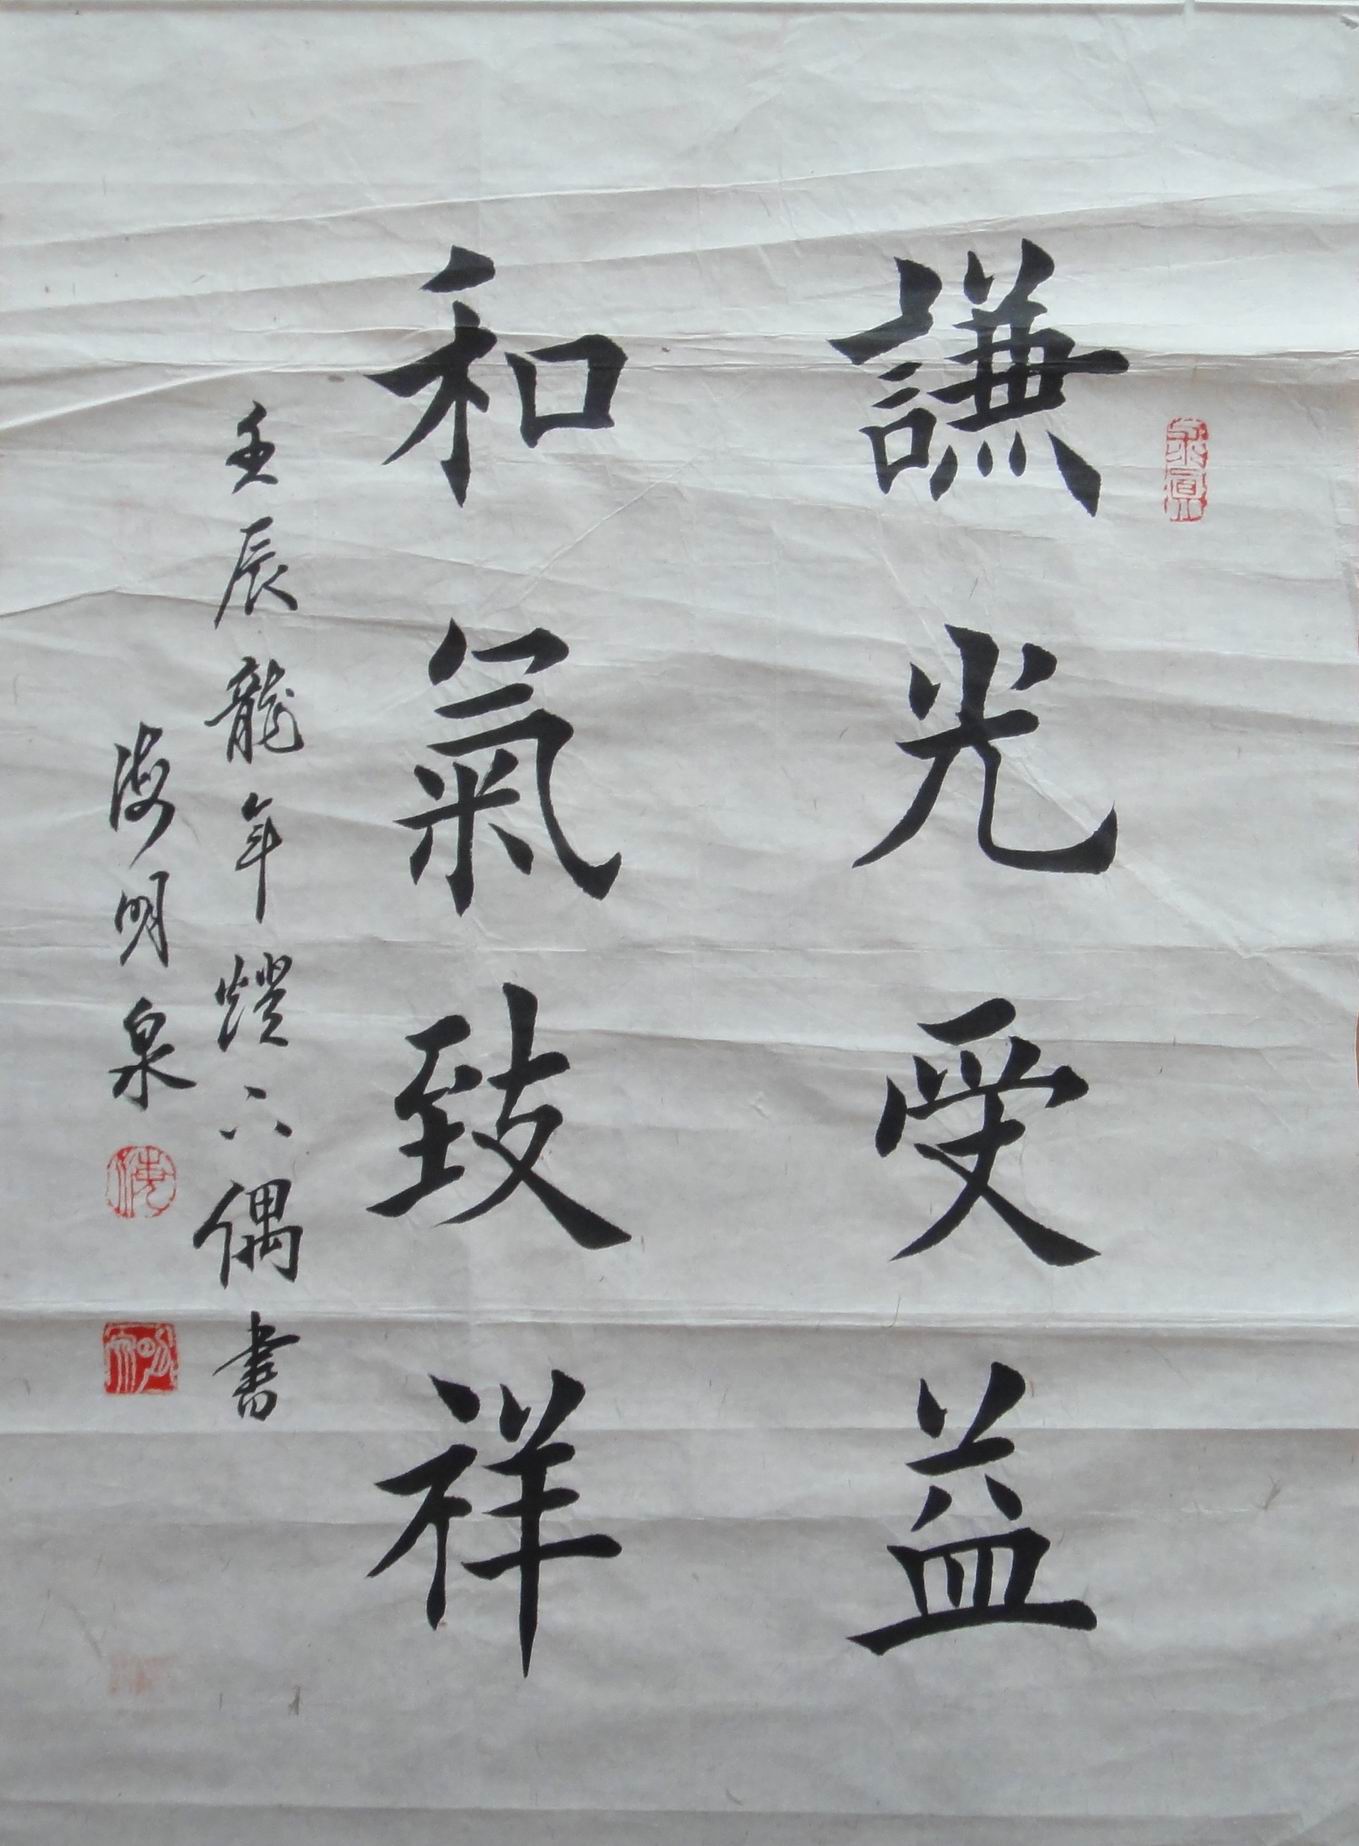 謙光受益
和氣致祥
壬辰龍年燈下偶書
海明泉
海